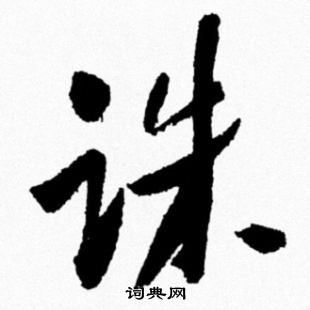 诛
词典网